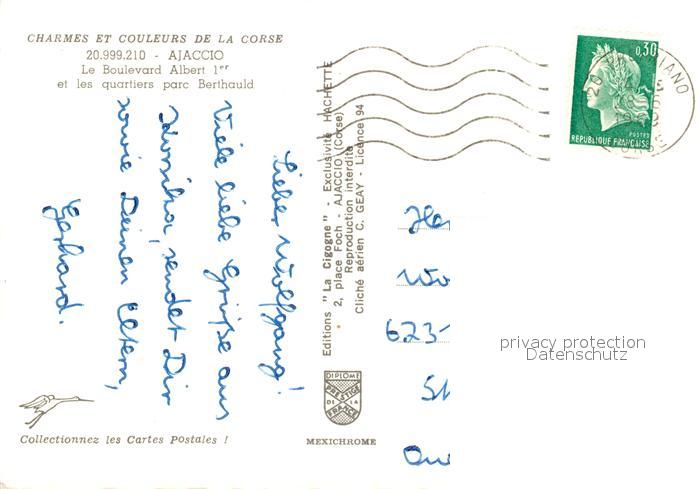 CHARMES ET COULEURS DE LA CORSE
20.999.210 - AJACCIO
Le Boulevard Albert 1er
et les quartiers parc Berthauld
Lieber Wolfgang!
Viele liebe Grüße aus
Korsika, sendet Dir
sowie Deinen Eltern,
Gerhard.
Editions "La Cigogne" - Exclusivité HACHETTE
2, place Foch - AJACCIO (Corse)
Reproduction interdite
Cliché aérien C. GEAY - Licence 94
0,30
POSTES
REPUBLIQUE FRANÇAISE
20
IANO
CORSE
He
Wo
623-
privacy protection
Datenschutz
DIPLOME
PRESTIGE
DE LA
FRANCE
Collectionnez les Cartes Postales !
MEXICHROME